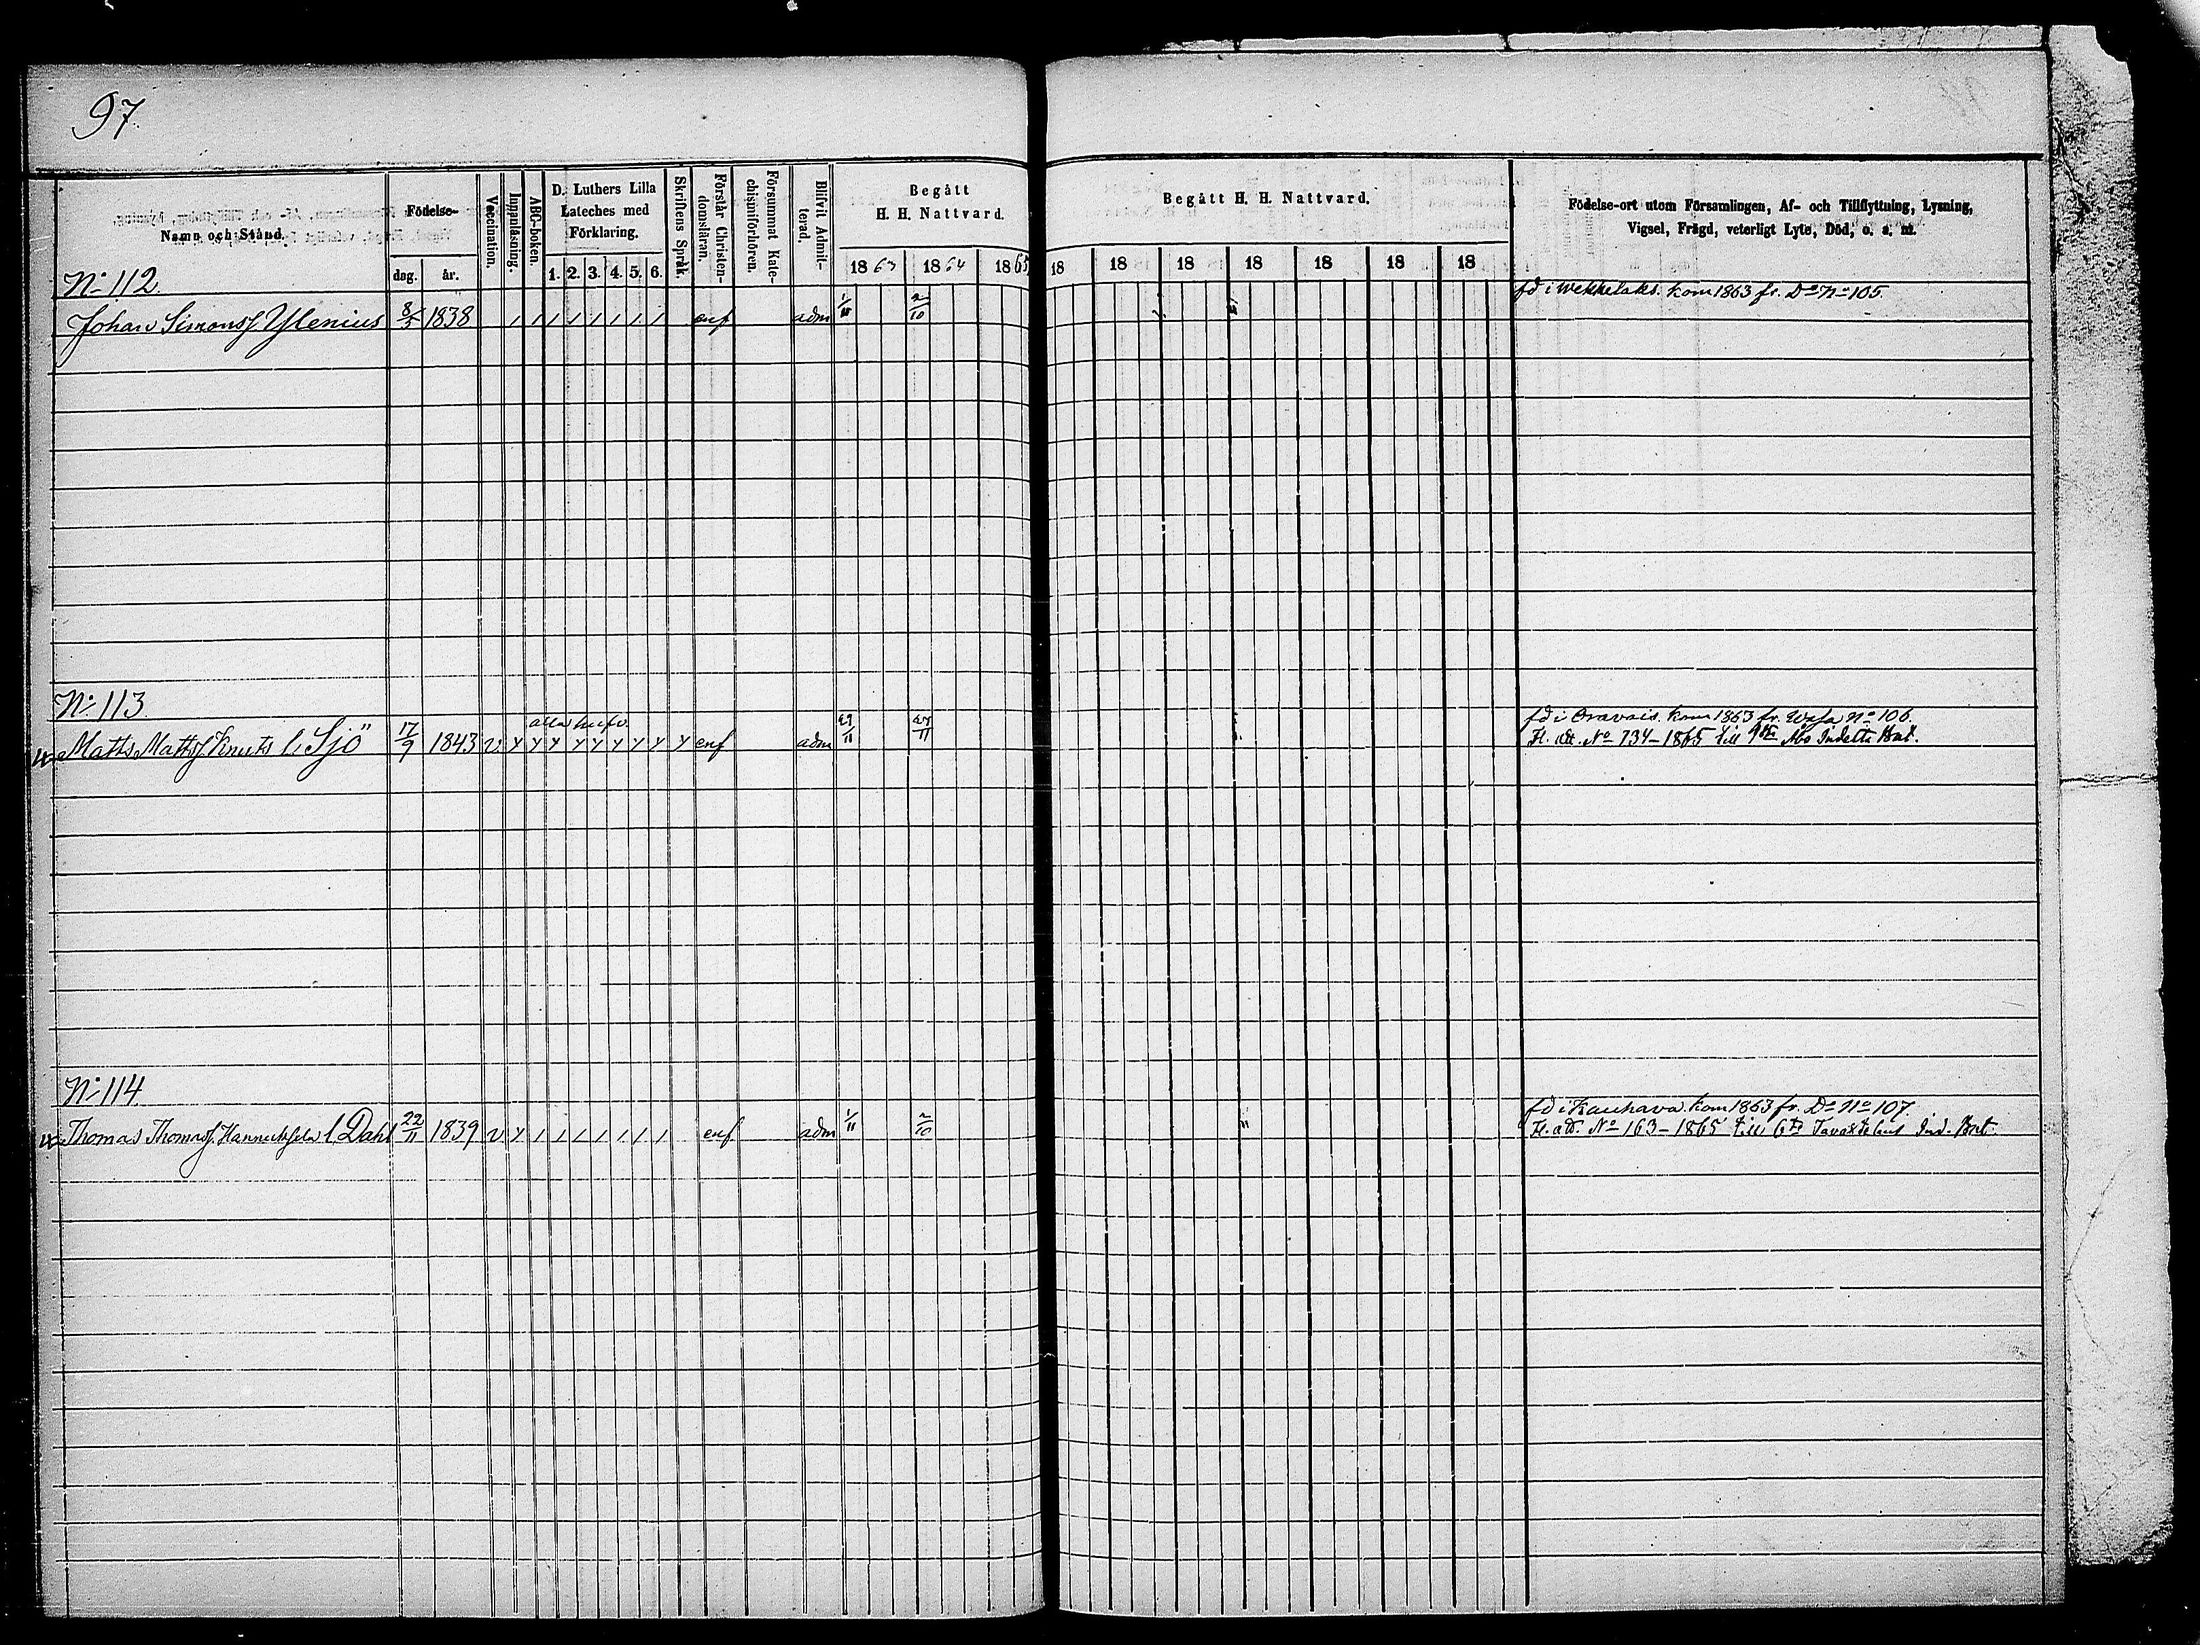 97.
Namn och Stånd.
Födelse-
dag. år.
Vaccination.
Innanläsning.
ABC-boken.
D. Luthers Lilla
Lateches med
Förklaring.
1. 2. 3. 4. 5. 6.
Skriftens Språk.
Förstår Christen-
domsläran.
Försummat Kate-
chismiförhören.
Blifvit Admit-
terad.
Begått
H. H. Nattvard.
1863 1864 1865
Begått H. H. Nattvard.
18 18 18 18 18 18 18
Födelse-ort utom Församlingen, Af- och Tillflyttning, Lysning,
Vigsel, Frägd, veterligt Lyte, Död, o. s. m.
No 112.
Johan Simonss. Ylenius 8/5 1838 enf adm 1/11 2/10
fd i Wekkelaks. kom 1863 fr. Do No 105.
No 113.
alla hufv.
Matts Mattss. Knuts l. Sjö 17/9 1843 v enf adm 29/11 27/11
fd i Oravais. kom 1863 fr. Wasa No 106.
Fl. att. No 734-1865 till Åbo Indelta Bat.
No 114.
Thomas Thomass. l. Dahl 22/11 1839 v enf adm 1/11 2/10
fd i Kauhava. kom 1863 fr. Do No 107.
Fl. att. No 163-1865 till 6te Tavastehus Ind. Bat.